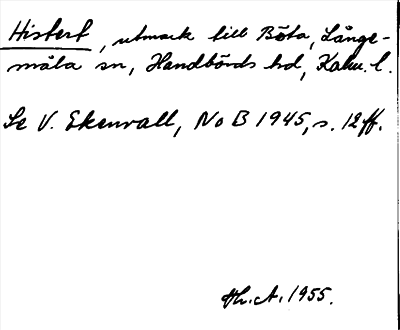 Histert, utmark till Böta, Långe-
måla sn, Handbörds hd, Kalm. l.
Se V. Ekenvall, NoB 1945, s. 12 ff.
Hh. A. 1955.